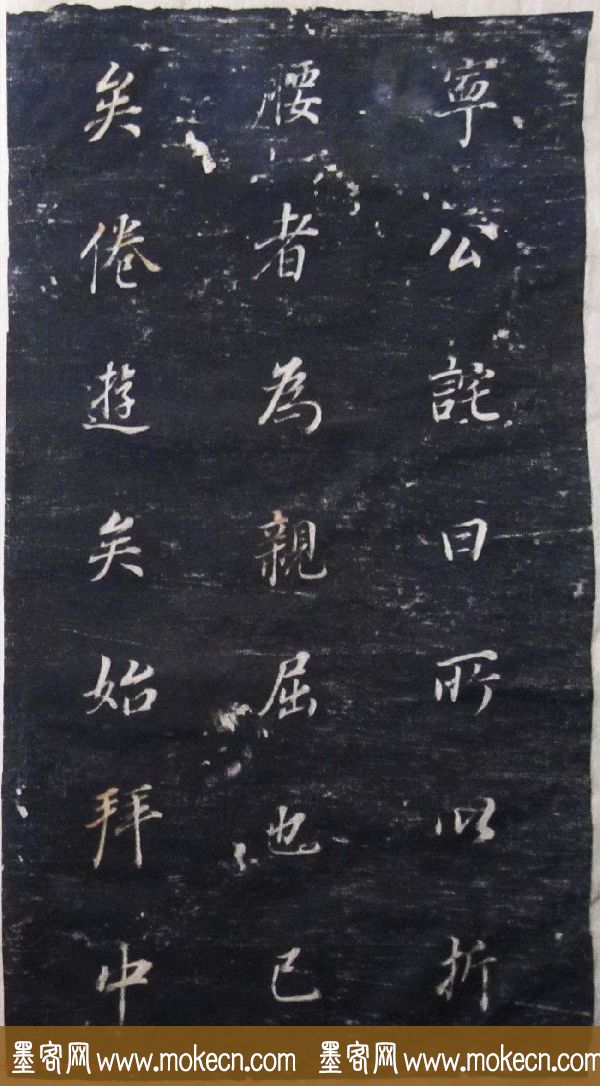 寧公詫曰所以折
腰者為親屈也已
矣倦遊矣始拜中
墨客网 www.mokecn.com 墨客网 www.mokecn.com